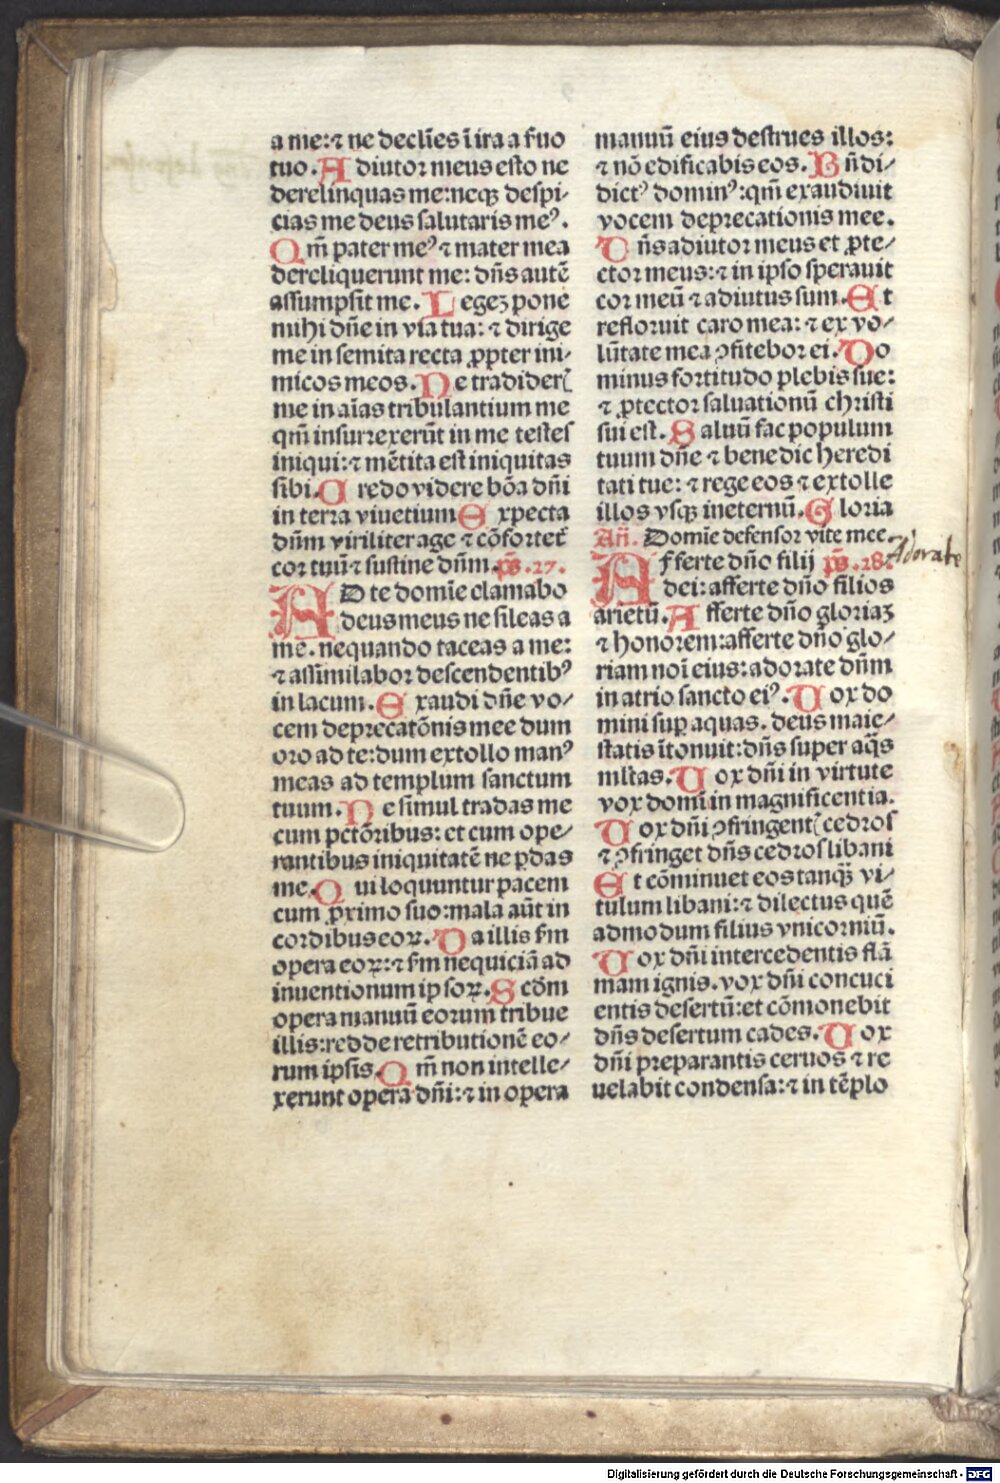 a me:⁊ ne declīes ī ira a ſuo
tuo. Adiutor meus eſto ne
derelinquas me:neqꝫ deſpi⸗
cias me deus ſalutaris meꝰ.
Qm̄ pater meꝰ ⁊ mater mea
dereliquerunt me: dn̄s autē
aſſumpſit me. Legeꝫ pone
mihi dn̄e in via tua: ⁊ dirige
me in ſemita recta ꝓpter ini⸗
micos meos. Ne tradiderꝭ
me in aīas tribulantium me
qm̄ inſurrexerūt in me teſtes
iniqui:⁊ mētita eſt iniquitas
ſibi. Credo videre bōa dn̄i
in terra viuetium Expecta
dūm viriliter age ⁊ cōfortet̄
cor tuū ⁊ ſuſtine dn̄m. pS̄.27.
AD te domīe clamabo
deus meus ne ſileas a
me. nequando taceas a me:
⁊ aſſimilabor deſcendentibꝰ
in lacum. Exaudi dn̄e vo⸗
cem deprecatōnis mee dum
oro ad te:dum extollo manꝰ
meas ad templum ſanctum
tuum. Ne ſimul tradas me
cum pctōribus: et cum ope⸗
rantibus iniquitatē ne ꝑdas
me. Qui loquuntur pacem
cum ꝓximo ſuo:mala aūt in
cordibus eoꝝ. Da illis ſm̄
opera eoꝝ:⁊ ſm̄ nequiciā ad
inuentionum ipſoꝝ. Scd̄m
opera manuū eorum tribue
illis:redde retributionē eo⸗
rum ipſis. Qm̄ non intelle⸗
xerunt opera dn̄i:⁊ in opera
manuū eius deſtrues illos:
⁊ nō edificabis eos. Bn̄di⸗
dictꝰ dominꝰ:qm̄ exaudiuit
vocem deprecationis mee.
Dn̄s adiutor meus et ꝓte⸗
ctor meus:⁊ in ipſo ſperauit
cor meū ⁊ adiutus ſum. Et
refloruit caro mea: ⁊ ex vo⸗
lūtate mea ꝯfitebor ei. Do
minus fortitudo plebis ſue:
⁊ ꝓtector ſaluationū chriſti
ſui eſt. Saluū fac populum
tuum dn̄e ⁊ benedic heredi
tati tue: ⁊ rege eos ⁊ extolle
illos vſqꝫ ineternū. Gloria
An̄. Domīe defenſor vite mee. Adorate
Afferte dn̄o filij pS̄.28.
dei:afferte dn̄o filios
arietū. Afferte dn̄o gloriaꝫ
⁊ honorem:afferte dn̄o glo⸗
riam noī eius:adorate dn̄m
in atrio ſancto eiꝰ. Vox do
mini ſuꝑ aquas. deus maie⸗
ſtatis ītonuit:dn̄s ſuper aq̄s
ml̄tas. Vox dn̄i in virtute
vox domīi in magnificentia.
Vox dn̄i ꝯfringentꝭ cedros
⁊ ꝯfringet dn̄s cedros libani
Et cōminuet eos tanqꝫ̄ vi⸗
tulum libani:⁊ dilectus quē
admodum filius vnicorniū.
Vox dn̄i intercedentis flā
mam ignis. vox dn̄i concuci
entis deſertū:et cōmonebit
dn̄s deſertum cades. Vox
dn̄i preparantis ceruos ⁊ re
uelabit condenſa:⁊ in tēplo
Digitalisierung gefördert durch die Deutsche Forschungsgemeinschaft - DFG